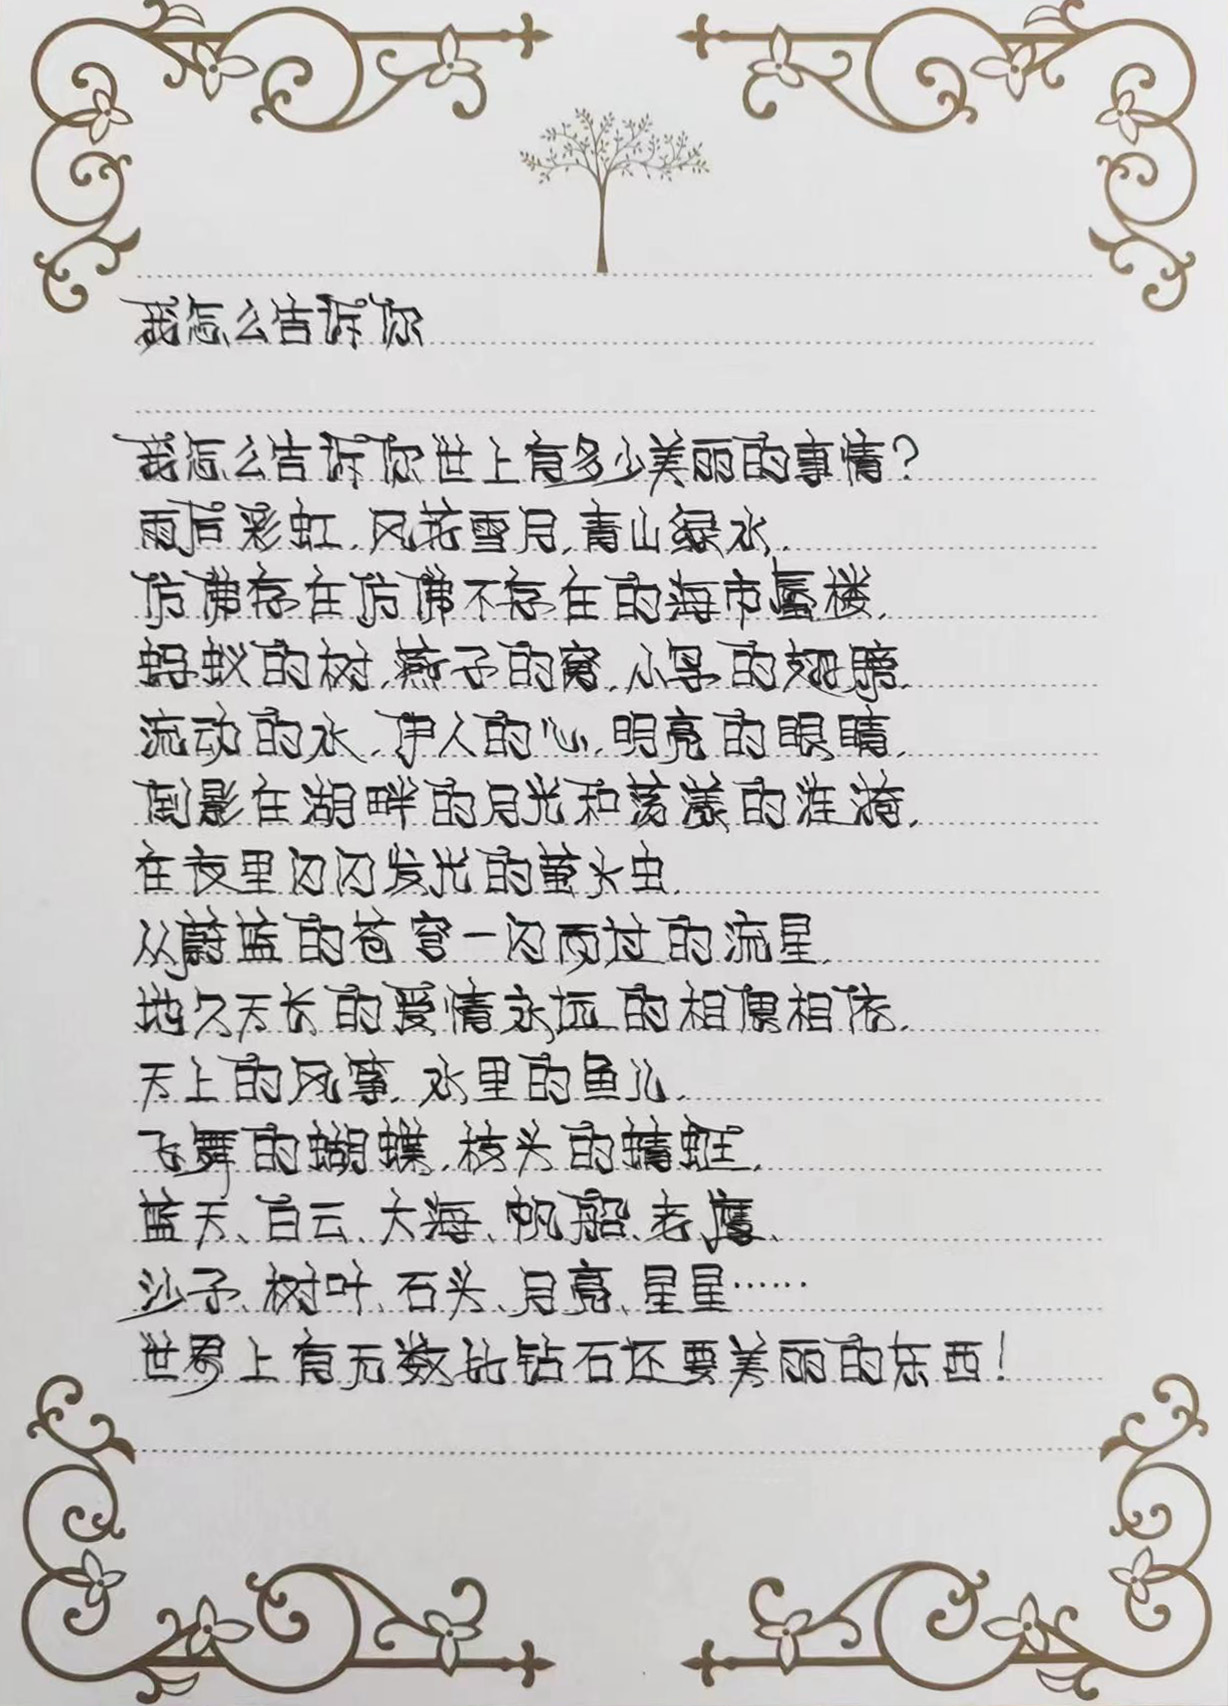 我怎么告诉你
我怎么告诉你世上有多少美丽的事情?
雨后彩虹,风花雪月,青山绿水,
仿佛存在仿佛不存在的海市蜃楼,
蚂蚁的树,燕子的窝,小鸟的翅膀,
流动的水,伊人的心,明亮的眼睛,
倒影在湖畔的月光和荡漾的涟漪,
在夜里闪闪发光的萤火虫,
从蔚蓝的苍穹一闪而过的流星,
地久天长的爱情永远的相偎相依,
天上的风筝,水里的鱼儿,
飞舞的蝴蝶,枝头的蜻蜓,
蓝天、白云、大海、帆船、老鹰、
沙子、树叶、石头、月亮、星星……
世界上有无数比钻石还要美丽的东西!